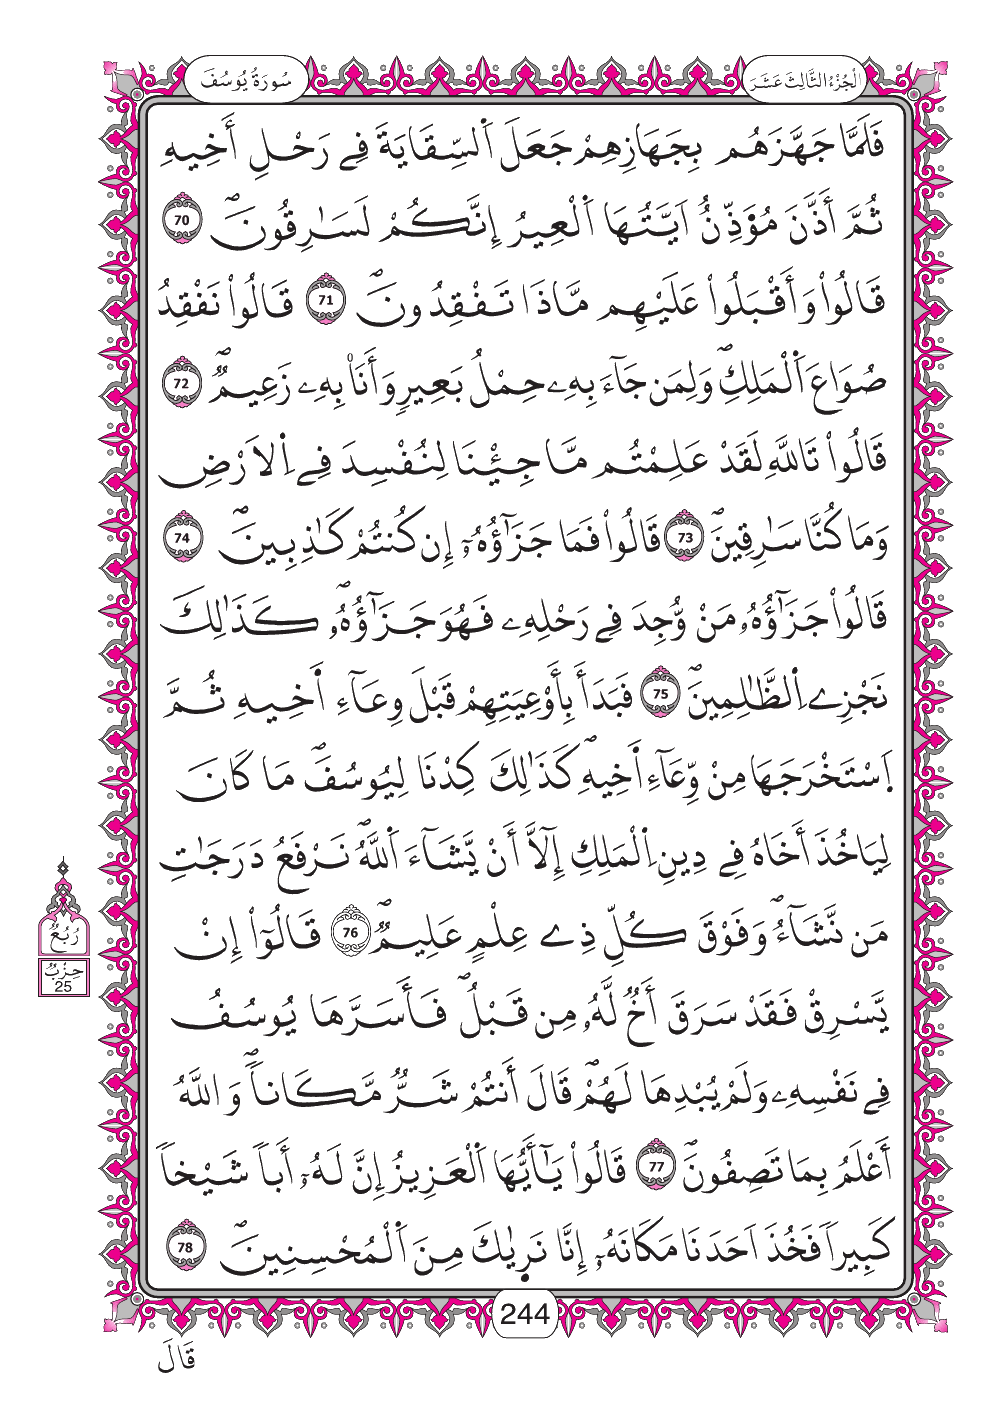 سُورَةُ يُوسُفَ
اَلْجُزْءُ الثَّالِثَ عَشَرَ
فَلَمَّا جَهَّزَهُم بِجَهَازِهِمْ جَعَلَ اَ۬لسِّقَايَةَ فِے رَحْلِ أَخِيهِ
ثُمَّ أَذَّنَ مُؤَذِّنٌ اَيَّتُهَا اَ۬لْعِيرُ إِنَّكُمْ لَسَٰرِقُونَۖ 70
قَالُواْ وَأَقْبَلُواْ عَلَيْهِم مَّاذَا تَفْقِدُونَۖ 71 قَالُواْ نَفْقِدُ
صُوَاعَ اَ۬لْمَلِكِۖ وَلِمَن جَآءَ بِهِۦ حِمْلُ بَعِيرٖ وَأَنَا۠ بِهِۦ زَعِيمٞۖ 72
قَالُواْ تَاللَّهِ لَقَدْ عَلِمْتُم مَّا جِئْنَا لِنُفْسِدَ فِے اِ۬لَارْضِ
وَمَا كُنَّا سَٰرِقِينَۖ 73 قَالُواْ فَمَا جَزَٰٓؤُهُۥٓ إِن كُنتُمْ كَٰذِبِينَۖ 74
قَالُواْ جَزَٰٓؤُهُۥ مَنْ وُّجِدَ فِے رَحْلِهِۦ فَهُوَ جَزَٰٓؤُهُۥۖ كَذَٰلِكَ
نَجْزِے اِ۬لظَّٰلِمِينَۖ 75 فَبَدَأَ بِأَوْعِيَتِهِمْ قَبْلَ وِعَآءِ اَ۬خِيهِ ثُمَّ
اَ۪سْتَخْرَجَهَا مِنْ وِّعَآءِ اَ۬خِيهِۖ كَذَٰلِكَ كِدْنَا لِيُوسُفَۖ مَا كَانَ
لِيَاخُذَ أَخَاهُ فِے دِينِ اِ۬لْمَلِكِ إِلَّآ أَنْ يَّشَآءَ اَ۬للَّهُۖ نَرْفَعُ دَرَجَٰتِ
مَن نَّشَآءُۖ وَفَوْقَ كُلِّ ذِے عِلْمٍ عَلِيمٞۖ 76 قَالُوٓاْ إِنْ
يَّسْرِقْ فَقَدْ سَرَقَ أَخٞ لَّهُۥ مِن قَبْلُۖ فَأَسَرَّهَا يُوسُفُ
فِے نَفْسِهِۦ وَلَمْ يُبْدِهَا لَهُمْۖ قَالَ أَنتُمْ شَرّٞ مَّكَاناٗۖ وَاللَّهُ
أَعْلَمُ بِمَا تَصِفُونَۖ 77 قَالُواْ يَٰٓأَيُّهَا اَ۬لْعَزِيزُ إِنَّ لَهُۥٓ أَباٗ شَيْخاٗ
كَبِيراٗ فَخُذَ اَحَدَنَا مَكَانَهُۥٓ إِنَّا نَر۪يٰكَ مِنَ اَ۬لْمُحْسِنِينَۖ 78
رُبُعُ
حِزْبٌ
25
244
قَالَ